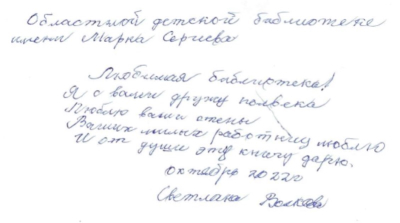 Областной детской библиотеке
имени Марка Сергеева
Любимая библиотека!
Я с вами дружу полвека
Люблю ваши стены
Ваших милых работниц люблю
И от души эту книгу дарю.
октябрь 2022г
Светлана Волкова